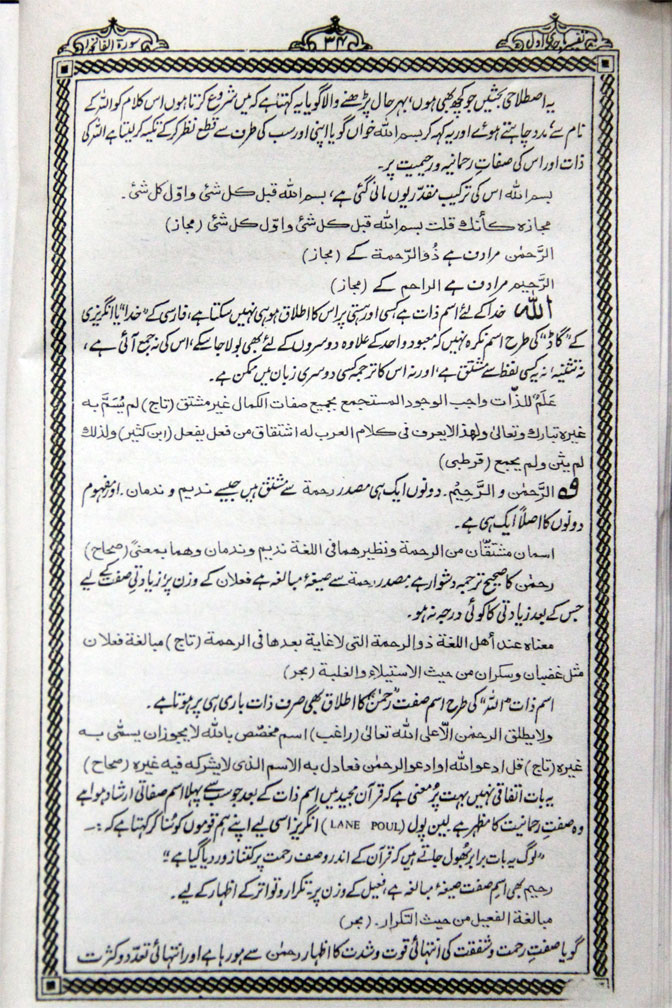 تفسیر ماجدی اول
۳۴
سورۃ الفاتحۃ ۱
یہ اصطلاحی بحثیں جو کچھ بھی ہوں، بہرحال پڑھنے والا گویا یہ کہتا ہے کہ میں شروع کرتا ہوں اس کلام کو اللہ کے
نام سے مدد چاہتے ہوئے اور یہ کہہ کر بسم اللہ خواں گویا اپنی اور سب کی طرف سے قطع نظر کرکے تکیہ کرلیتا ہے اللہ کی
ذات اور اس کی صفاتِ رحمانیہ و رحمیت پر۔
بسم اللہ اس کی ترکیب مقدّر یوں مانی گئی ہے، بسم اللہ قبل کل شیٔ واوّل کل شیٔ۔
مجازہ کأنك قلت بسم اللہ قبل کل شیٔ واوّل کل شیٔ (مجاز)
الرَّحمٰن مرادف ہے ذُوالرّحمة کے (مجاز)
الرَّحیم مرادف ہے الراحم کے (مجاز)
اللہ خدا کے لئے اسم ذات ہے کسی اور ہستی پر اس کا اطلاق ہو ہی نہیں سکتا ہے، فارسی کے "خدا" یا انگریزی
کے "گاڈ" کی طرح اسم نکرہ نہیں کہ معبود واحد کے علاوہ دوسروں کے لئے بھی بولا جاسکے، اس کی نہ جمع آتی ہے،
نہ تثنیہ، نہ یہ کسی لفظ سے مشتق ہے، اور نہ اس کا ترجمہ کسی دوسری زبان میں ممکن ہے۔
عَلَمٌ للذّات واجب الوجود المستجمع بجمیع صفات الکمال غیر مشتق (تاج) لم یُسَمَّ به
غیرہ تبارك وتعالیٰ ولهذا لایعرف فی کلام العرب له اشتقاق من فعل یفعل (ابن کثیر) ولذلك
لم یثن ولم یجمع (قرطبی)
الرَّحمٰن و الرَّحِیْم۔ دونوں ایک ہی مصدر رحمة سے مشتق ہیں جیسے ندیم و ندمان۔ اور مفہوم
دونوں کا اصلاً ایک ہی ہے۔
اسمان مشتقّان من الرحمة ونظیرهما فی اللغة ندیم وندمان وهما بمعنیً (صحاح)
رحمٰن کا صحیح ترجمہ دشوار ہے مصدر رحمة سے صیغۂ مبالغہ ہے فعلان کے وزن پر زیادتیِ صفت کے لیے
جس کے بعد زیادتی کا کوئی درجہ نہ ہو۔
معناہ عند أهل اللغة ذوالرحمة التی لاغایة بعدها فی الرحمة (تاج) مبالغة فعلان
مثل غضبان وسکران من حیث الاستیلاء والغلبة (بحر)
اسم ذات "اللہ" کی طرح اسم صفت "رحمٰن" کا اطلاق بھی صرف ذات باری ہی پر ہوتا ہے۔
ولا یطلق الرحمٰن الّا علی اللہ تعالیٰ (راغب) اسم مخصّص باللہ لا یجوز ان یسمّٰی به
غیرہ (تاج) قل ادعوا اللہ او ادعوا الرحمٰن فعادل به الاسم الذی لا یشرکه فیه غیرہ (صحاح)
یہ بات اتفاقی نہیں بہت پُر معنی ہے کہ قرآن مجید میں اسم ذات کے بعد جو سب سے پہلا اسم صفاتی ارشاد ہوا ہے
وہ صفتِ رحمانیت کا مظہر ہے، لین پول (LANE POUL) انگریز اسی لیے اپنے ہم قوموں کو سُنا کر کہتا ہے کہ :۔
"لوگ یہ بات برابر بھول جاتے ہیں کہ قرآن کے اندر وصف رحمت پر کتنا زور دیا گیا ہے"
رحیم بھی اسم صفت صیغۂ مبالغہ ہے، فعیل کے وزن پر تکرار و تواتر کے اظہار کے لیے۔
مبالغة الفعیل من حیث التکرار۔ (بحر)
گویا صفتِ رحمت و شفقت کی انتہائی قوت و شدت کا اظہار رحمٰن سے ہورہا ہے اور انتہائی تعدّد و کثرت